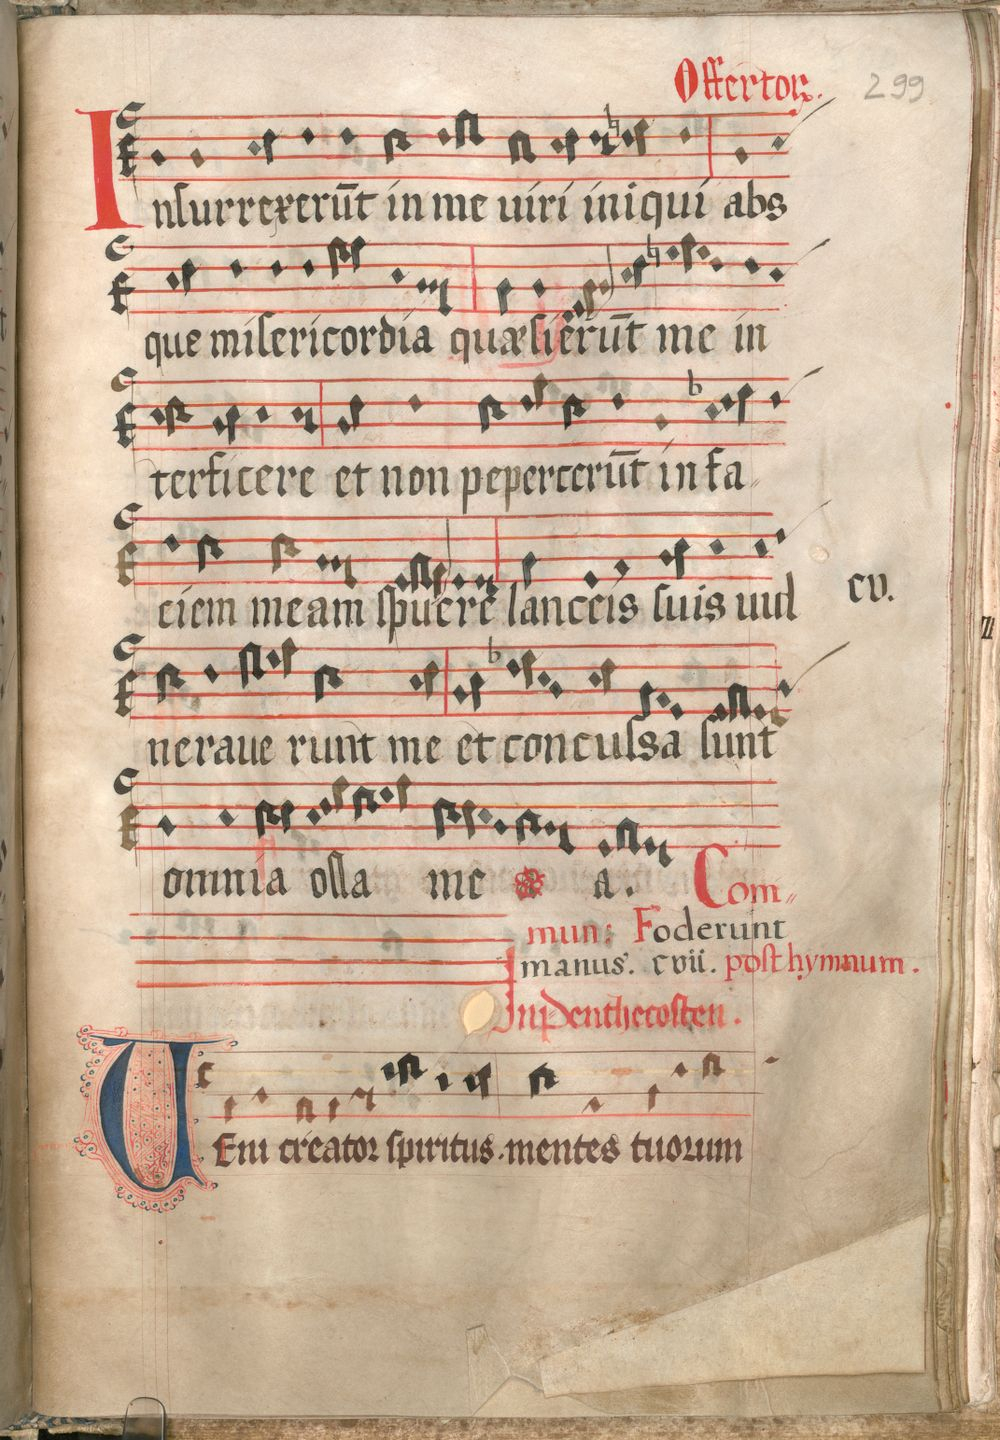 Offertor. 299
Insurrexerūt in me uiri iniqui abs
que misericordia quæsierūt me in
terficere et non pepercerūt in fa-
ciem meam spuere lanceis suis uul
cv.
neraue runt me et concussa sunt
omnia ossa me a a. Com-
mun: Foderunt
manus. cvii. post hymnum.
In Penthecosten.
VEni creator spiritus. mentes tuorum